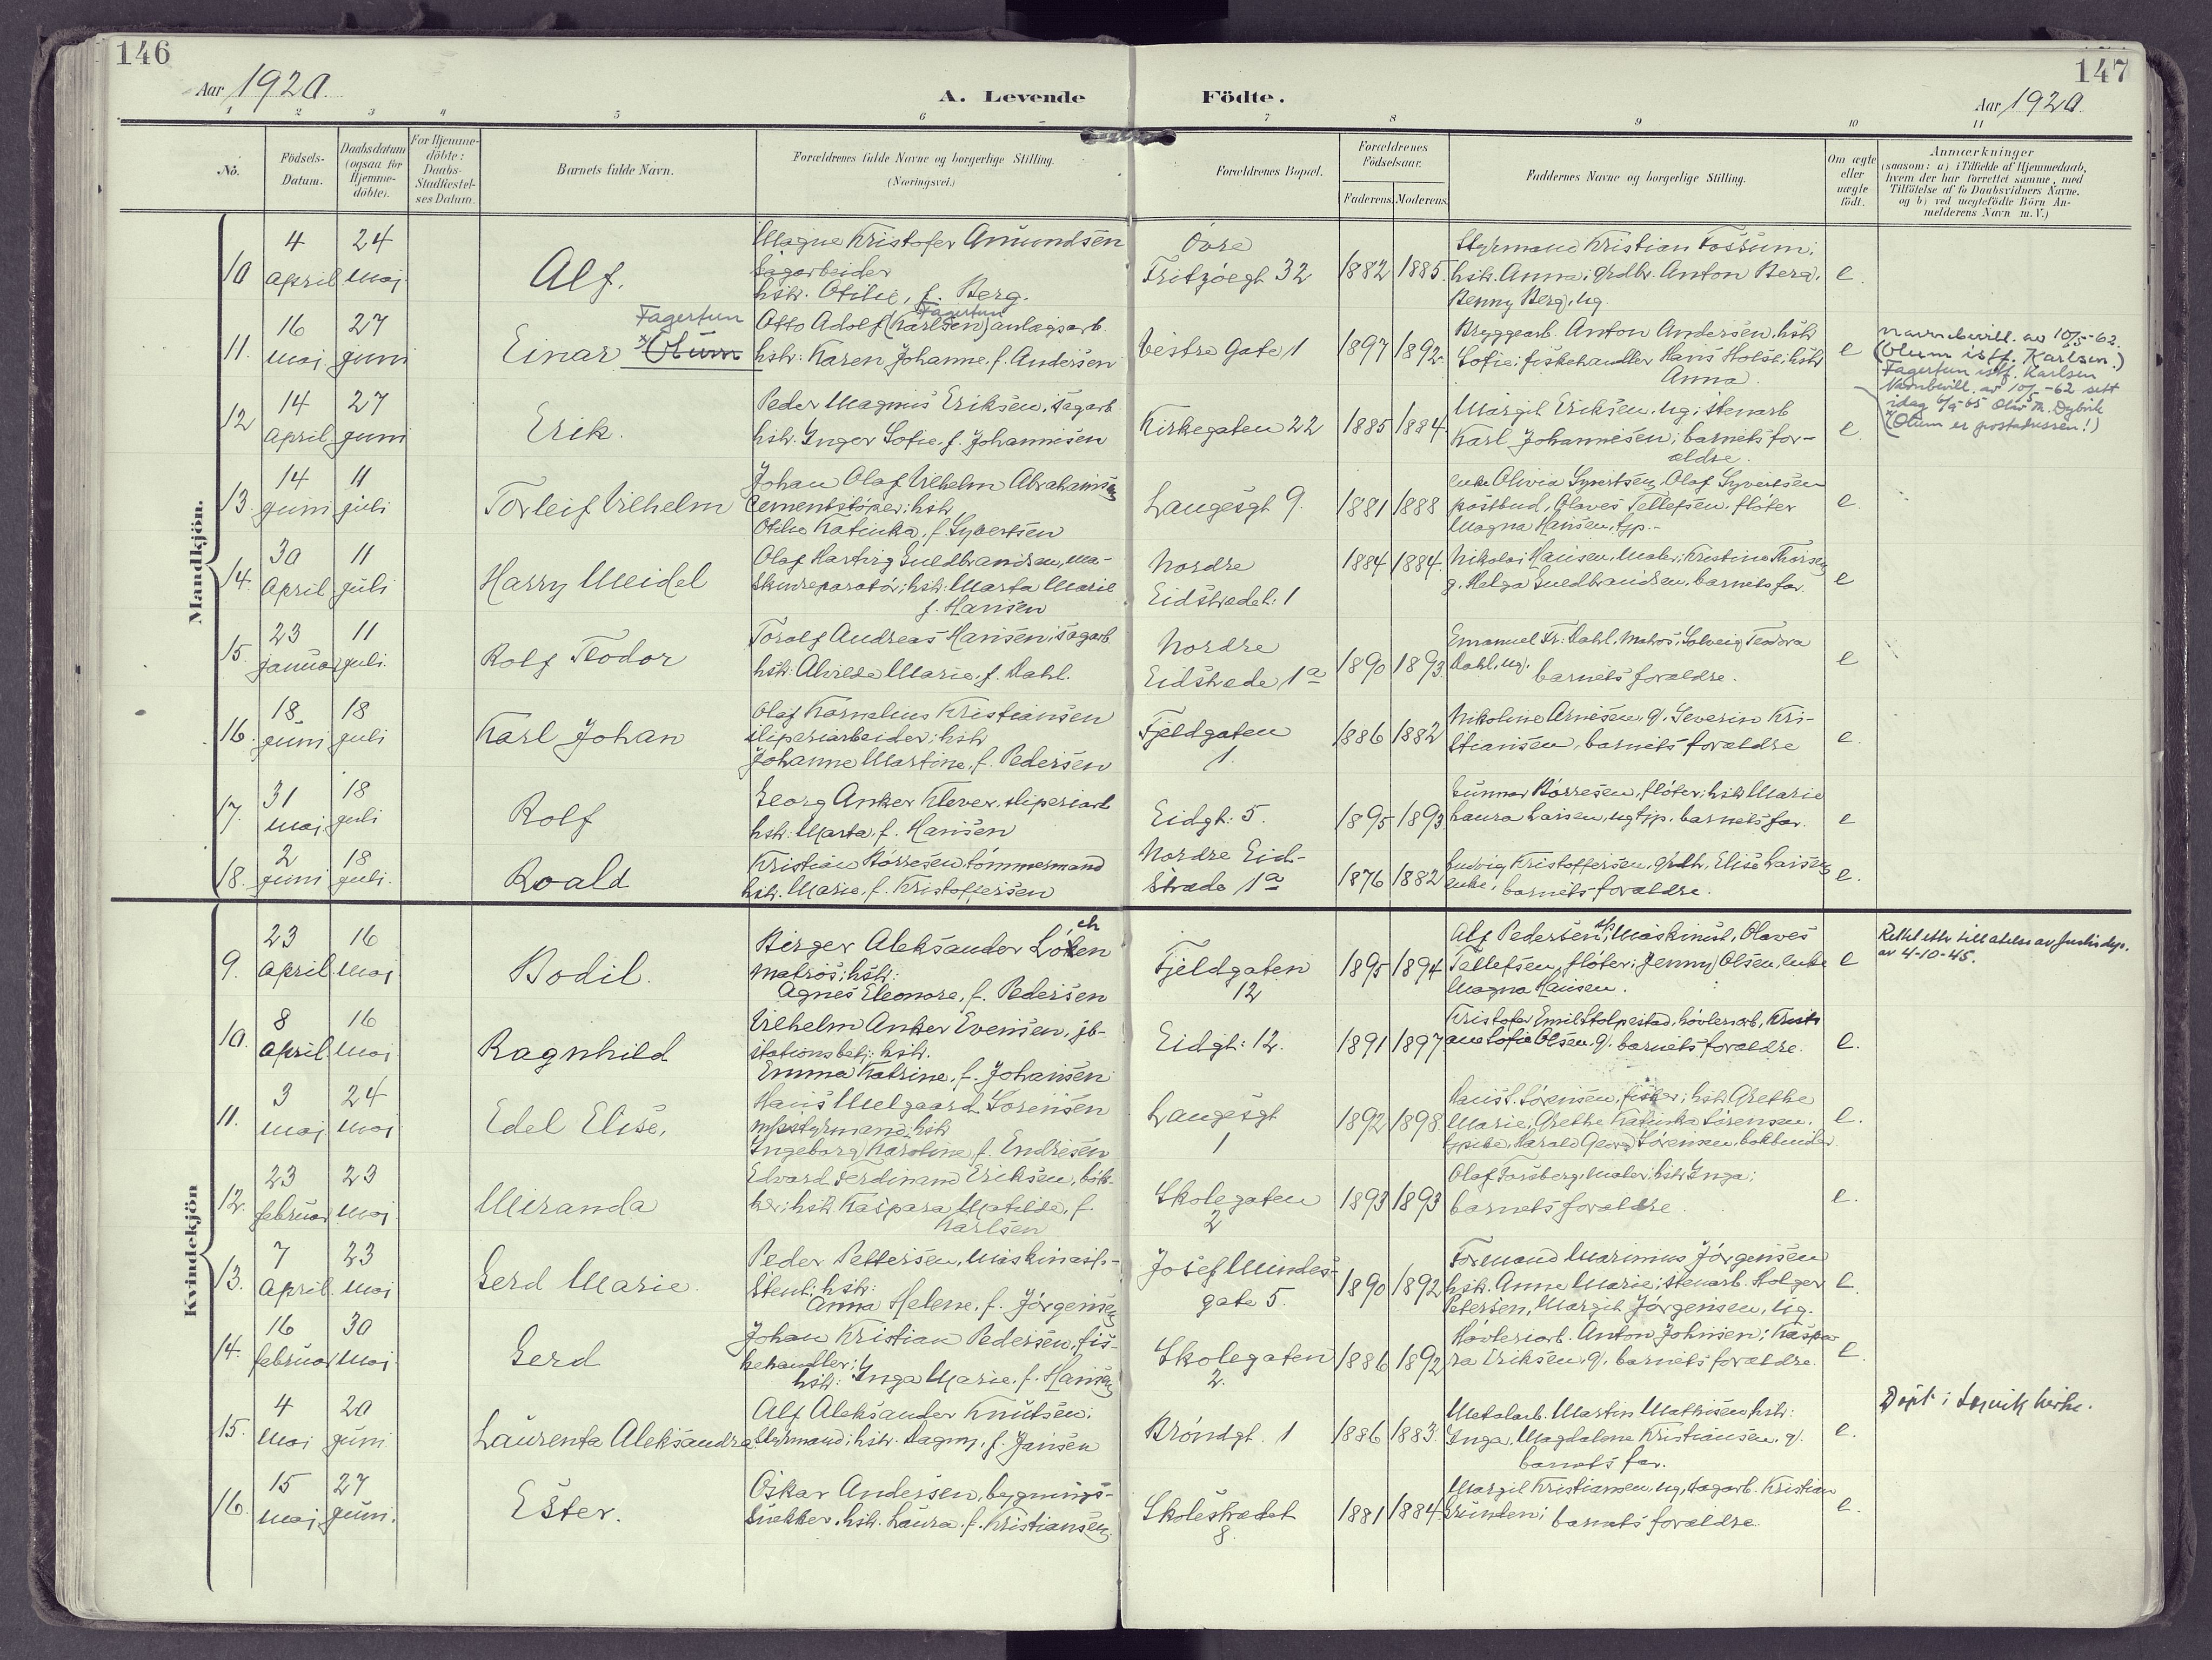 146
Aar 1920.
A. Levende
Födte.
147
Aar 1920.
1 2 3 4 5 6 7 8 9 10 11
No.
Födsels-
Datum.
Daabsdatum
(ogsaa for
Hjemme-
döbte).
For Hjemme-
döbte:
Daabs-
Stadfæstel-
ses Datum.
Barnets fulde Navn.
Forældrenes fulde Navne og borgerlige Stilling.
(Næringsvei.)
Forældrenes Bopæl.
Forældrenes
Födselsaar.
Faderens. Moderens.
Faddernes Navne og borgerlige Stilling.
Om ægte
eller
uægte
födt.
Anmærkninger
(saasom: a) i Tilfælde af Hjemmedaab,
hvem der har forrettet samme, med
Tilföielse af to Daabsvidners Navne.
og b) ved uægtefödte Börn An-
melderens Navn m.V.)
Mandkjön.
10 4 april 24 mai
Alf.
Magne Kristofer Amundsen
sagarbeider
hstr. Otilie, f. Berg.
Övre
Fritzöegt 32
1882 1885.
Styrmand Kristian Fossum;
hstr. Anna; grdbr. Anton Berg,
Benny Berg, ug.
e.
11. 16 mai 27 juni
Einar Olum Fagertun
Otto Adolf (Karlsen) anlægsarb.
Fagertun
hstr: Karen Johanne, f. Andersen
Vestre Gate 1
1897 1892.
Bryggearb. Anton Andersen, hstr
Sofie; fiskehandler Hans Holse; hstr
Anna.
e
Navnebevill. av 10/5-62.
(Olum istf. Karlsen.)
Fagertun istf. Karlsen
Navnbevill. av 10/5-62 sett
idag 6/9-65 Olav M. Dybvik
(Olum er postadressen!)
12 14 april 27 juni
Erik.
Peder Magnus Eriksen, sagarb
hstr. Inger Sofie, f. Johannisen
Kirkegaten 22
1885 1884.
Margit Eriksen, ug; stenarb
Karl Johannesen; barnets for-
ældre.
e.
13. 14 juni 11 juli
Torleif Vilhelm
Johan Olaf Vilhelm Abrahamsen
cementstöper; hstr
Otilie Katinka, f. Syvertsen
Langesgt 9.
1881 1888
enke Olivia Syvertsen, Olaf Syvertsen
postbud, Olaves Tellefsen, flöter
Magna Hansen, tjp.
e.
14. 30 april 11 juli
Harry Meidel
Olaf Hartvig Guldbrandsen, ma-
skinreparatör; hstr: Marta Marie
f. Hansen
Nordre
Eidstrædet: 1
1884 1884.
Nikolai Hansen, Maler; Kristine Thorsen,
g. Helga Guldbrandsen, barnets far.
e
15. 23 januar 11 juli.
Rolf Teodor
Toralf Andreas Hansen; sagarb
hstr: Alvilde Marie, f. Dahl.
Nordre
Eidstræde 1a
1890 1893.
Emanuel Fr. Dahl, matros; Solveig Teodora
Dahl, ug. barnets forældre.
e
16. 18 juni 18 juli
Karl Johan
Olaf Kornelius Kristiansen
sliperiarbeider; hstr
Johanne Martine, f. Pedersen
Fjeldgaten
1.
1886 1882
Nikoline Arnesen, g. Severin Kri-
stiansen, barnets forældre
e.
17. 31 mai 18 juli
Rolf
Georg Anker Klever, sliperiarb
hstr: Marta, f. Hansen
Eidgt: 5.
1895 1893
Gunnar Börresen, flöter; hstr Marie
Laura Larsen, ug tjp. barnets far.
e
18. 2 juni 18 juli.
Roald
Kristian Börresen, tömmermand
hstr. Marie, f. Kristoffersen
Nordre Eid-
stræde 1a
1876 1882
Ludvig Kristoffersen, grdbr, Elise Larsen,
enke; barnets forældre.
e.
Kvindekjön
9. 23 april 16 mai
Bodil.
Birger Aleksander Löken ch
matros; hstr:
Agnes Eleonore, f. Pedersen
Fjeldgaten
12
1895 1894
Alf Pedersen, Maskinist, Olaves
Tellefsen, flöter; Jenny Olsen, enke
Magna Hansen.
e
av 4-10-45.
10. 8 april 16 mai
Ragnhild
Vilhelm Anker Evensen, jb-
stationsbetj; hstr.
Emma Katrine, f. Johansen
Eidgt: 12.
1891 1897
Kristofer Emil Stolpestad, hövleriarb, Kristi
ane Sofie Olsen, g. barnets forældre.
e.
11. 3 mai 24 mai
Edel Elise,
Hans Melgaard Sorensen
hstr
Ingeborg Karoline, f. Endresen
Langesgt
1
1892 1898
Hans S. Sörensen, fisker; hstr Grethe
Marie, Grethe Katinka Sörensen,
Harald Georg Sörensen, bokbinder.
e.
12. 23 februar 23 mai
Miranda
Edvard Ferdinand Eriksen, bök-
ker; hstr Kaspara Matilde, f.
Karlsen
Skolegaten
2
1893 1893
Olaf Forsberg, maler; hstr Inga;
barnets forældre.
e.
13. 7 april 23 mai
Gerd Marie.
Peder Pettersen, Maskinassi-
stent; hstr:
Anna Helene, f. Jörgensen
Josef Mindes-
gate 5.
1890 1892
Formand Marinius Jörgensen
hstr. Anne Marie; stenarb. Holger
Petersen, Margit Jörgensen, ug.
e.
14. 16 februar 30 mai
Gerd
Johan Kristian Pedersen, fis-
kehandler;
hstr: Inga Marie, f. Hansen
Skolegaten
2.
1886 1892
Hövleriarb. Anton Johnsen; Kaspa-
ra Eriksen, g. barnets forældre.
e.
15. 4 mai 20 juni
Laurenta Aleksandra
Alf Aleksander Knutsen;
Styrmand; hstr. Dagny, f. Jansen
Bröndgt. 1
1886 1883.
Metalarb. Martin Mathisen, hstr:
Inga. Magdalene Kristiansen, g.
barnets far.
e.
Döpt i Larvik kirke.
16. 15 mai 27 juni.
Ester.
Oskar Andersen, bygnings-
snekker, hstr. Laura, f. Kristiansen.
Skolestrædet
8.
1881 1884
Margit Kristiansen, ug, sagarb. Kristian
Grunden; barnets forældre
e.